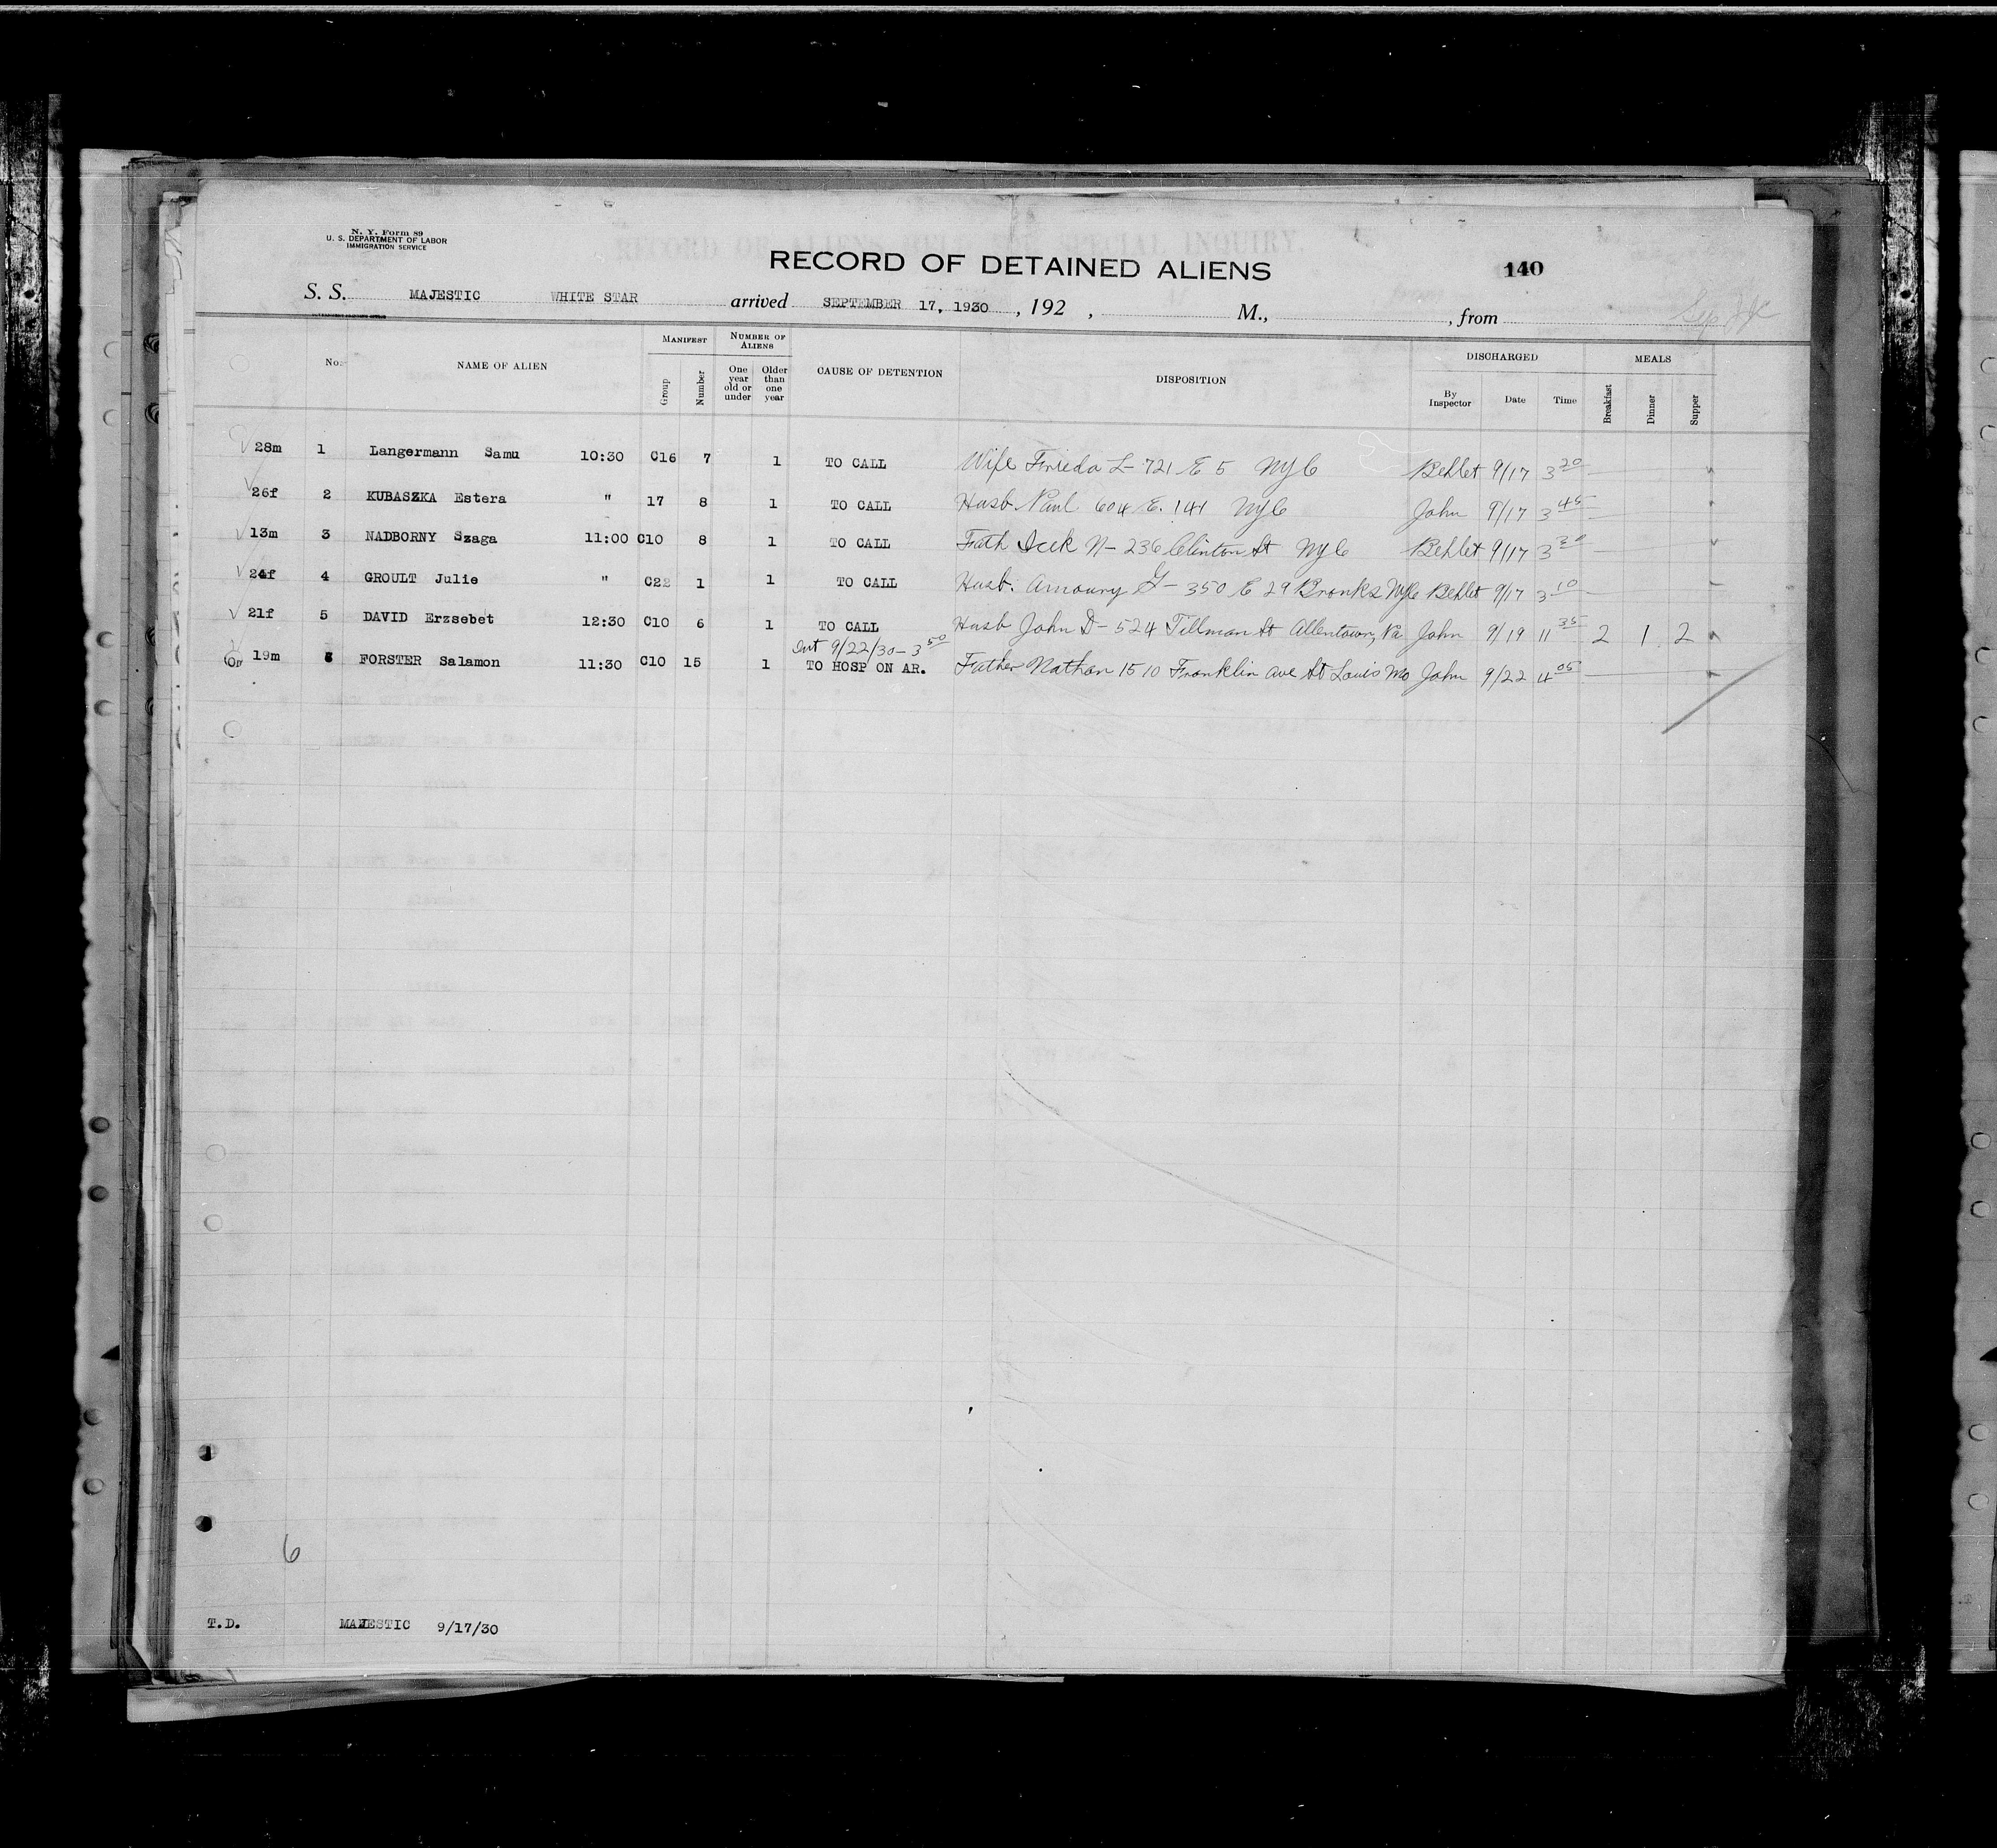 N. Y. Form 89
U. S. DEPARTMENT OF LABOR
IMMIGRATION SERVICE
RECORD OF DETAINED ALIENS
140
S. S. MAJESTIC WHITE STAR arrived SEPTEMBER 17, 1930 , 192 , M., , from
No. NAME OF ALIEN MANIFEST Group Number NUMBER OF ALIENS One year old or under Older than one year CAUSE OF DETENTION DISPOSITION DISCHARGED By Inspector Date Time MEALS Breakfast Dinner Supper
28m 1 Langermann Samu 10:30 C16 7 1 TO CALL Wife Frieda L- 721 E 5 NYC Behlet 9/17 3 20
26f 2 KUBASZKA Estera " 17 8 1 TO CALL Husb. Paul 604 E. 141 NYC John 9/17 3 45
13m 3 NADBORNY Szaga 11:00 C10 8 1 TO CALL Fath Icek N- 236 Clinton St NYC Behlet 9/17 3 30
24f 4 GROULT Julie " C22 1 1 TO CALL Husb. Amoury G- 350 E 29 Bronks NYC Behlet 9/17 3 10
21f 5 DAVID Erzsebet 12:30 C10 6 1 TO CALL Husb John D- 524 Tillman St Allentown, Pa John 9/19 11 35 2 1 2
Out 9/22/30- 3 50
19m 6 FORSTER Salamon 11:30 C10 15 1 TO HOSP ON AR. Father Nathan 1510 Franklin ave St Louis Mo John 9/22 4 05
6
T.D. MAJESTIC 9/17/30